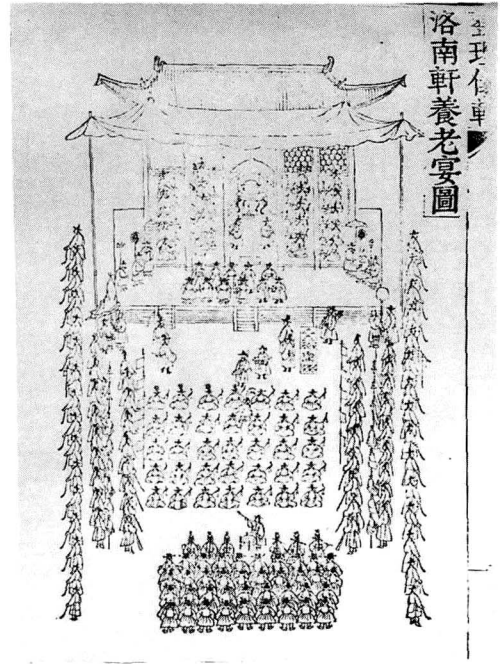 洛南軒養老宴圖